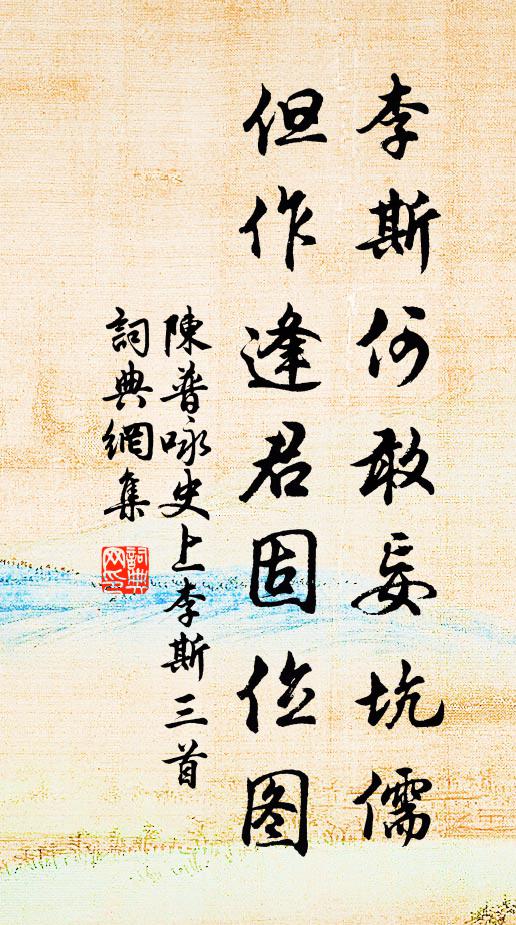 李斯何敢妄坑儒
但作逢君固位图
陳普咏史上李斯三首
詞典網集
詞典网